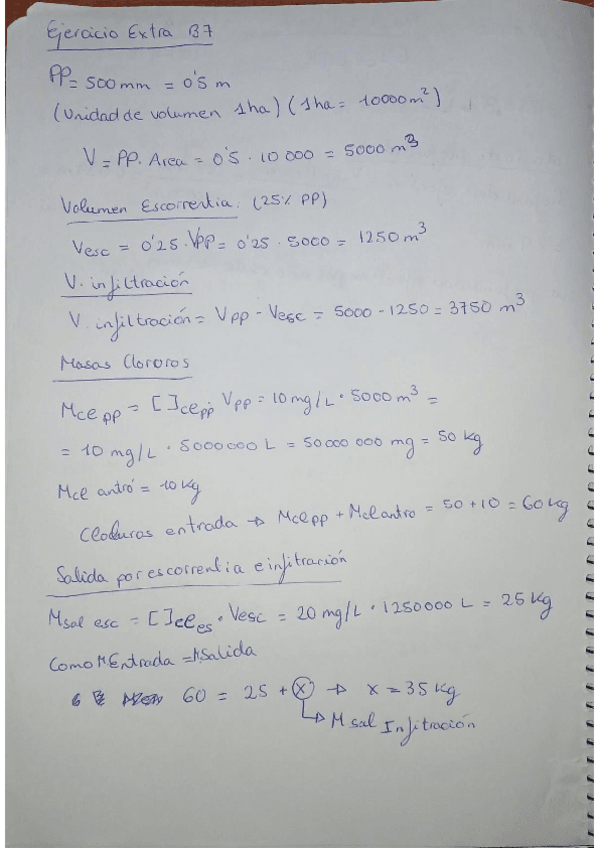 Ejercicio Extra B7
PP = 500 mm = 0'5 m
(Unidad de volumen 1ha) (1ha = 10000 m²)
V = PP. Area = 0'5 · 10 000 = 5000 m³
Volumen Escorrentia: (25% PP)
Vesc = 0'25 · VPP = 0'25 · 5000 = 1250 m³
V. infiltración
V. infiltración = Vpp - Vesc = 5000 - 1250 = 3750 m³
Masas Cloruros
Mce pp = [ ]ce pp · Vpp = 10 mg/L · 5000 m³ =
= 10 mg/L · 5000000 L = 50000 000 mg = 50 kg
Mcl antró = 10 Kg
Cloduros entrada → Mclpp + Mclantro = 50 + 10 = 60 kg
Salida por escorrentia e infitración
Msal esc = [ ]cl es · Vesc = 20 mg/L · 1250000 L = 25 Kg
Como MEntrada = MSalida
60 = 25 + x → x = 35 kg
→ M sal Infitración